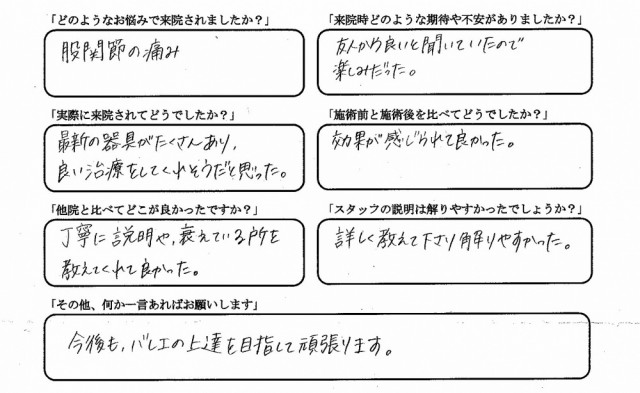 「どのようなお悩みで来院されましたか？」
股関節の痛み
「来院時どのような期待や不安がありましたか？」
友人から良いと聞いていたので
楽しみだった。
「実際に来院されてどうでしたか？」
最新の器具がたくさんあり、
良い治療をしてくれそうだと思った。
「施術前と施術後を比べてどうでしたか？」
効果が感じられて良かった。
「他院と比べてどこが良かったですか？」
丁寧に説明や、衰えている所を
教えてくれて良かった。
「スタッフの説明は解りやすかったでしょうか？」
詳しく教えて下さり解りやすかった。
「その他、何か一言あればお願いします」
今後も、バレエの上達を目指して頑張ります。